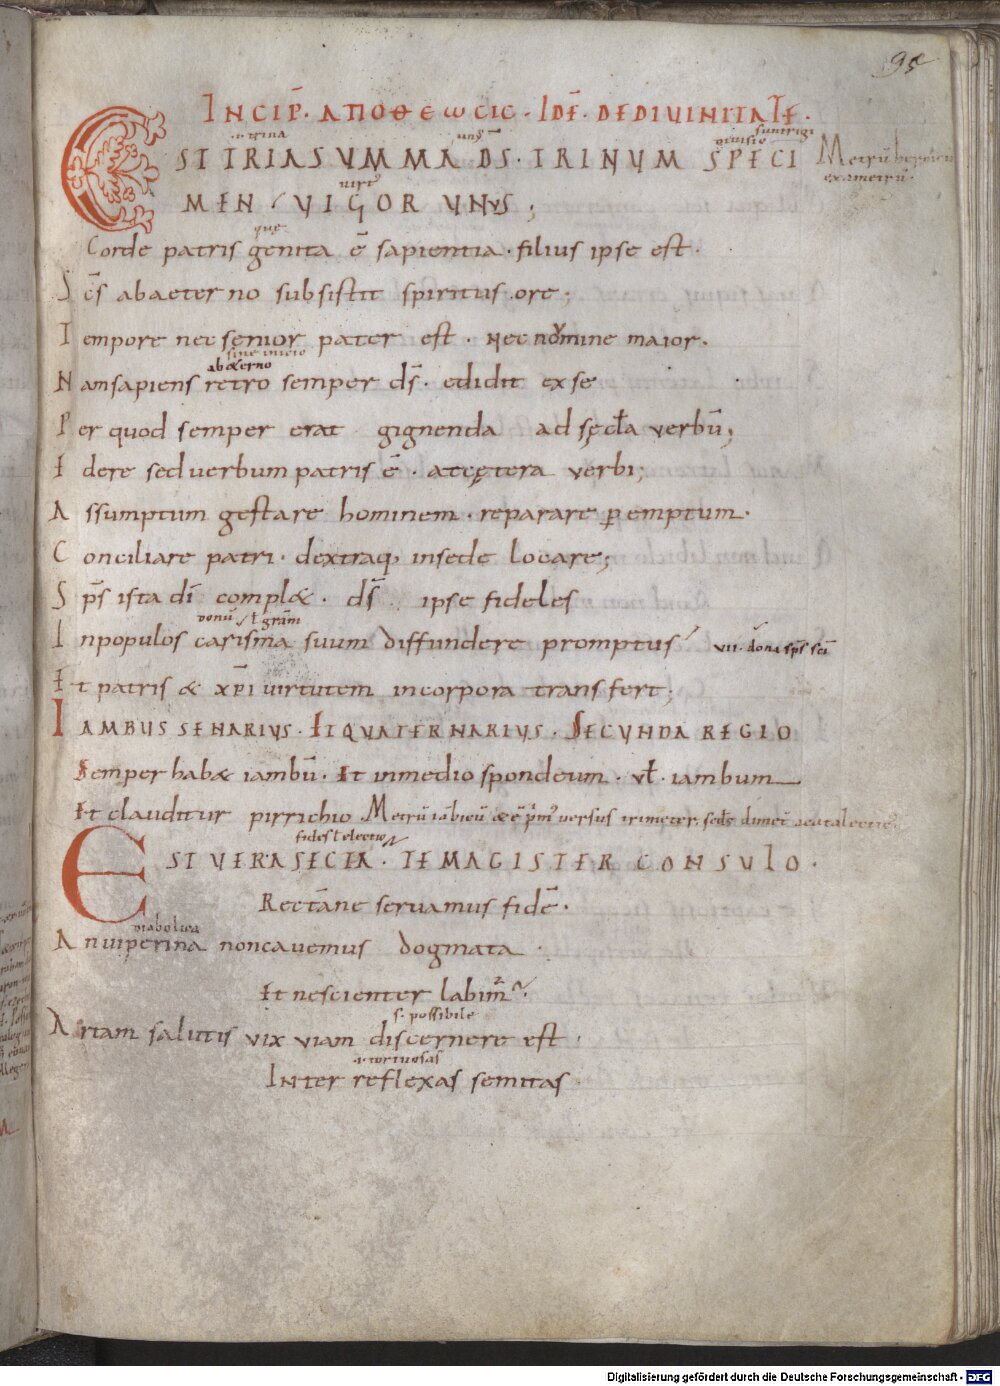 95
INCIP̄. ΑΠΟΘΕωCIC. IDĒ. DE DIUINITATE.
.i. trina un9 diuisio sunt rigi
EST TRIA SUMMA D̄S. TRINUM SPECI Metrū
exametrū.
MEN. VIGOR UNVS;
que
Corde patris genita ē sapientia. filius ipse est.
S c̄s abaeterno subsistit spiritus ore;
T empore nec senior pater est. Nec nomine maior.
sine inicio
ab &erno
N am sapiens retro semper d̄s. edidit ex se
P er quod semper erat gignenda ad sęcl̄a verbū;
E dere sed uerbum patris ē. at cętera verbi;
A ssumptum gestare hominem. reparare peremptum.
C onciliare patri. dextraq; in sede locare;
S p̄s ista d̄i compl&. d̄s ipse fideles
donū ł grām
I n populos carisma suum diffundere promptus vii. dona sp̄s sc̄i
E t patris & xp̄i uirtutem in corpora transfert;
IAMBUS SENARIUS. ET QUATERNARIUS. SECUNDA REGIO
Semper hab& iambū. Et in medio spondeum. vł. iambum
Et clauditur pirrichio. Metrū iābicū
fides ł electio
EST UERA SECTA. TE MAGISTER CONSULO.
Rectāne seruamus fidē.
diabolica
A n uiperina non cauemus dogmata.
Et nescienter labim̄.
s. possibile
A rtam salutis vix viam discernere est.
.i. tortuosas
Inter reflexas semitas.
Digitalisierung gefördert durch die Deutsche Forschungsgemeinschaft - DFG